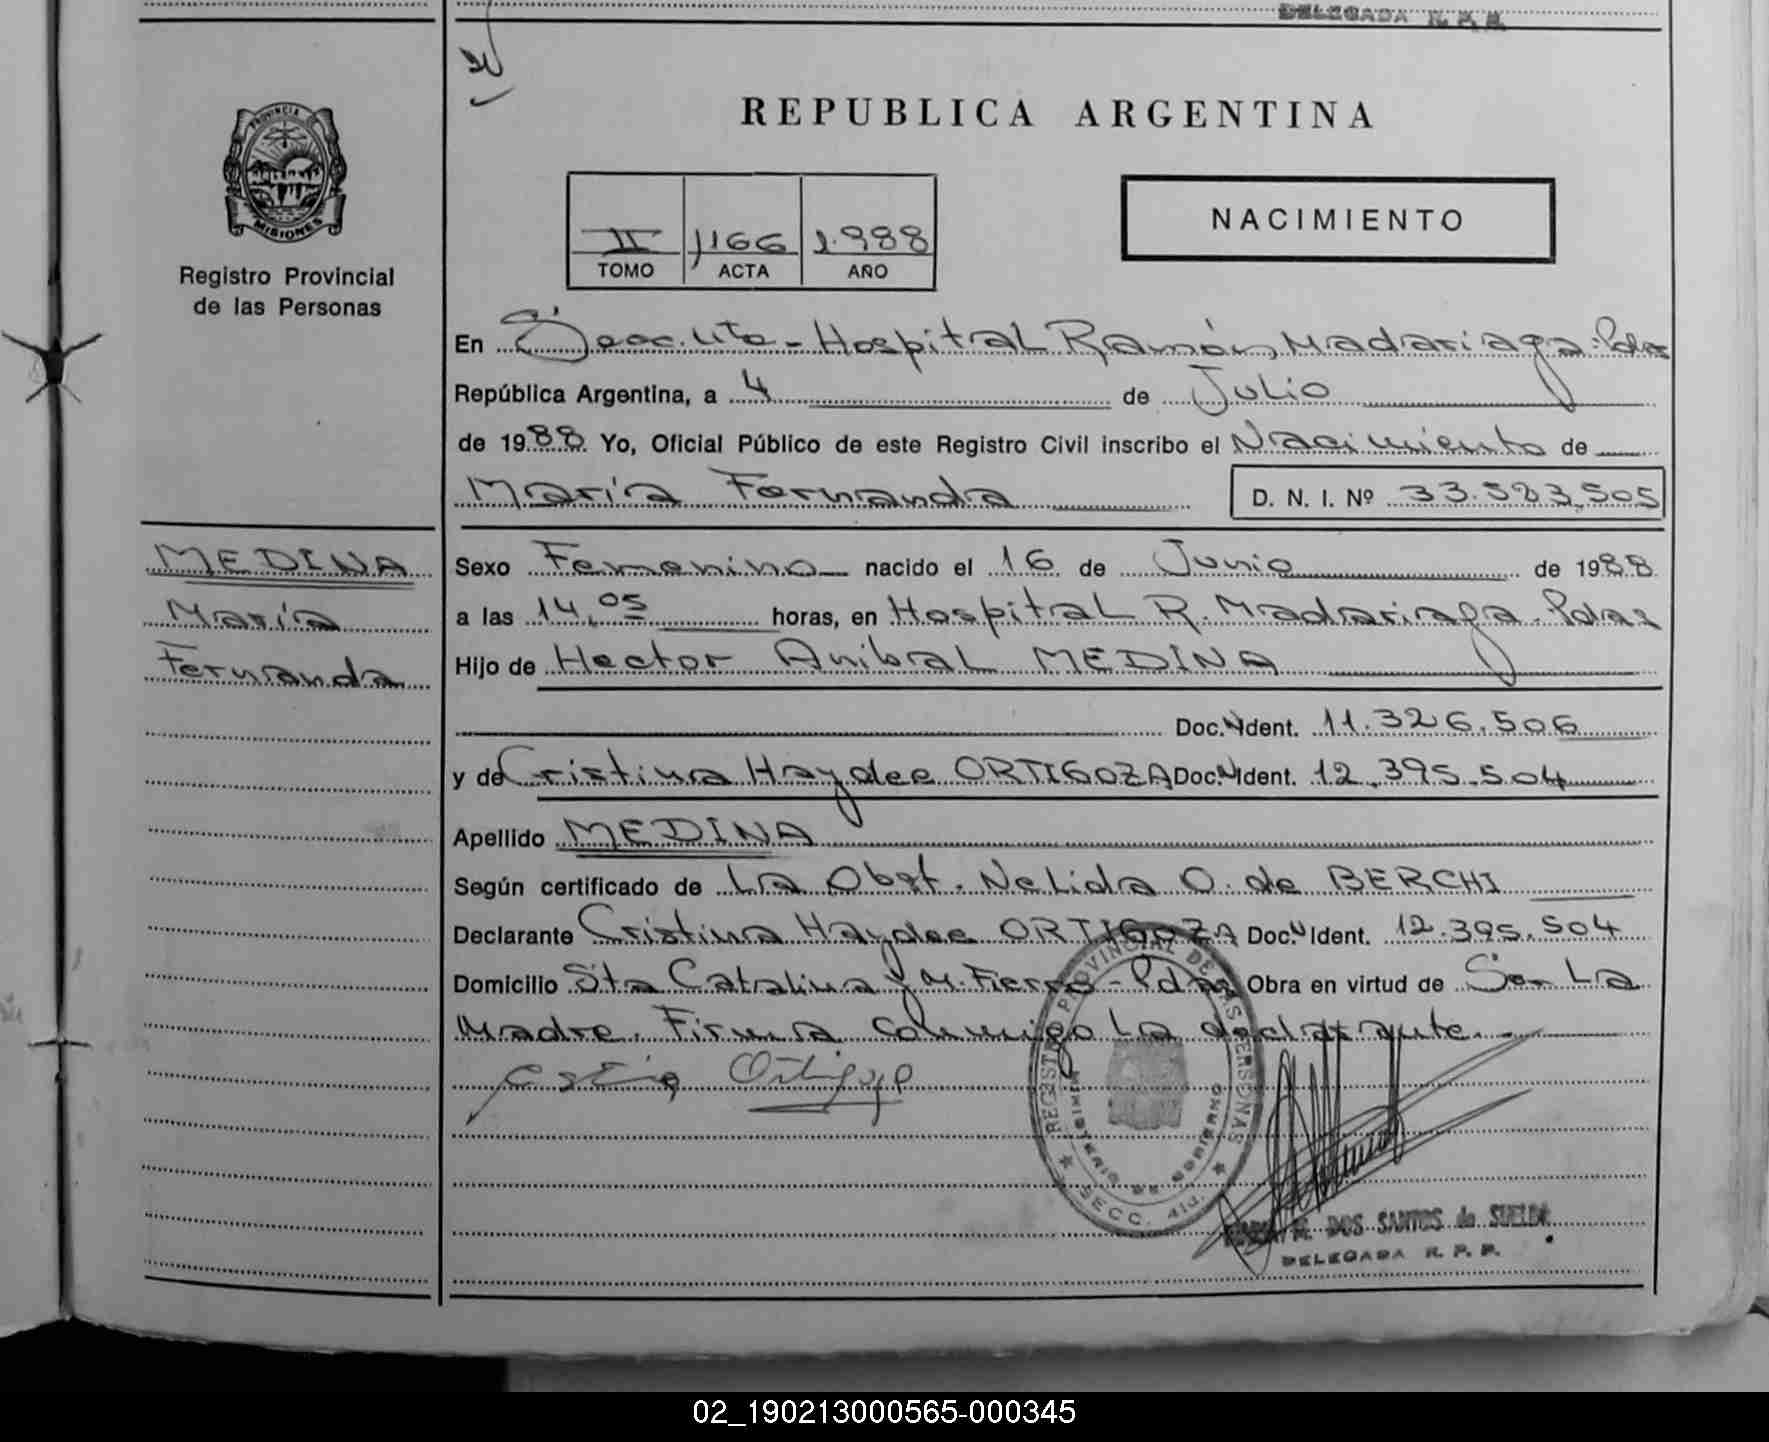 DELEGADA R. P. P.
REPUBLICA ARGENTINA
PROVINCIA DE
MISIONES
Registro Provincial
de las Personas
II 1166 1.988
TOMO ACTA AÑO
NACIMIENTO
En Secc. 4ta - Hospital Ramón Madariaga - Pdas
República Argentina, a 4 de Julio
de 1988 Yo, Oficial Público de este Registro Civil inscribo el Nacimiento de
María Fernanda D. N. I. Nº 33.523.505
MEDINA
María
Fernanda
Sexo Femenino nacido el 16 de Junio de 1988
a las 14,05 horas, en Hospital R. Madariaga - Pdas
Hijo de Hector Anibal MEDINA
Doc. N Ident. 11.326.506
y de Cristina Haydee ORTIGOZA Doc. N Ident. 12.395.504
Apellido MEDINA
Según certificado de La Obst. Nelida O. de BERCHI
Declarante Cristina Haydee ORTIGOZA Doc. N Ident. 12.395.504
Domicilio Sta Catalina y M. Fierro - Pdas Obra en virtud de Ser La
Madre. Firma conmigo La declarante.
REGISTRO PROVINCIAL DE LAS PERSONAS
MINISTERIO DE GOBIERNO
SECC. 4ta.
M. DOS SANTOS de SUELDO
DELEGADA R. P. P.
02_190213000565-000345